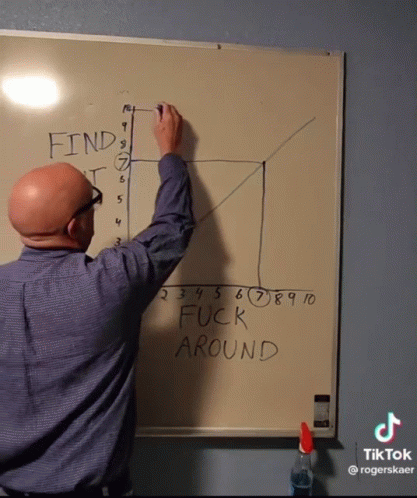 10
9
8
FIND
7
6
5
4
3
2 3 4 5 6 7 8 9 10
FUCK
AROUND
TikTok
@rogerskaer